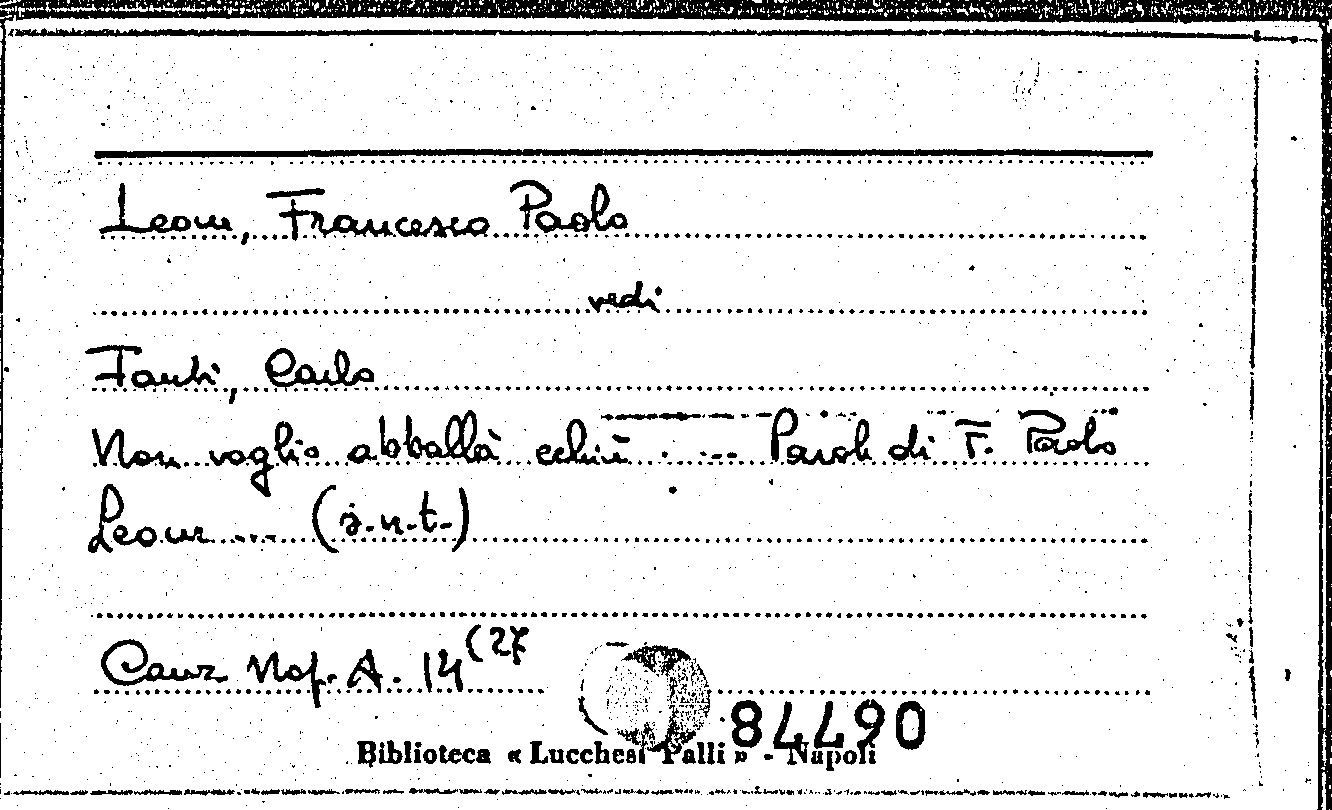 Leone, Francesco Paolo
vedi
Fanti, Carlo
Non voglio abballà cchiù .... Parole di F. Paolo
Leone .... (s.n.t.)
Canz Nap. A. 14 (27
84490
Biblioteca « Lucchesi Palli » - Napoli